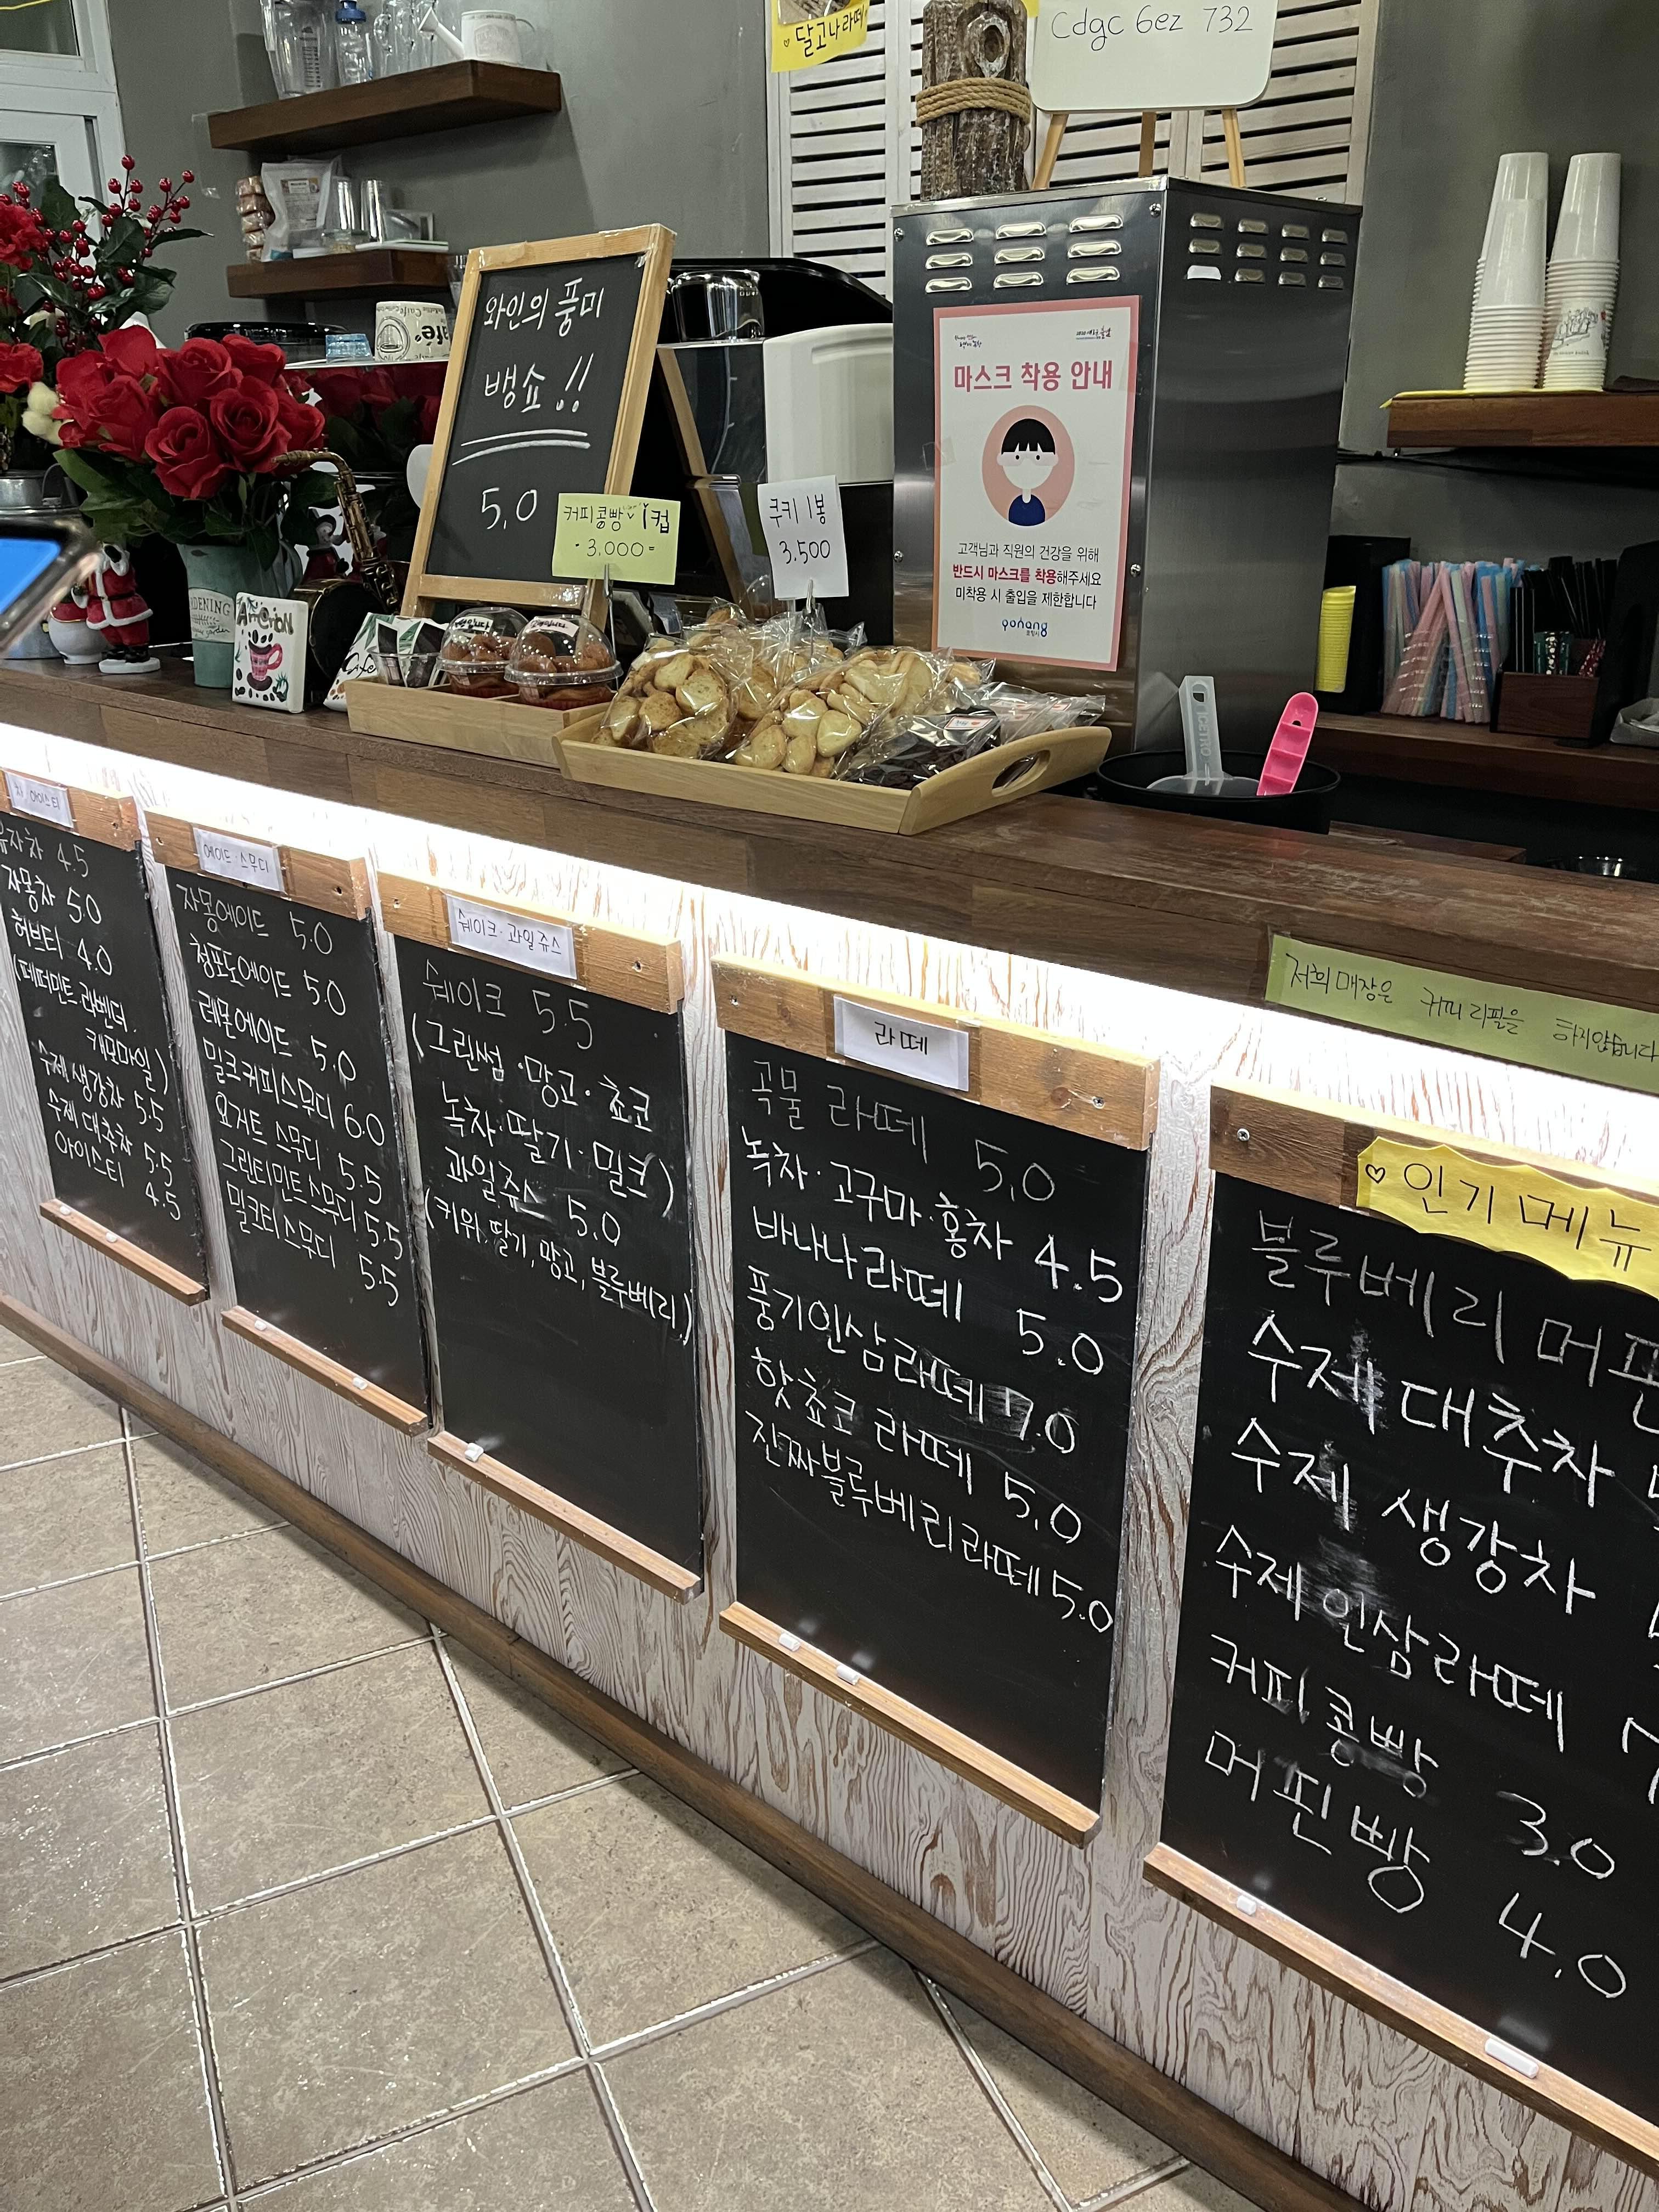 달고나라떼
Cdgc 6ez 732
와인의 풍미
뱅쇼!!
5,0
커피콩빵 1컵
3,000=
쿠키 1봉
3.500
마스크 착용 안내
고객님과 직원의 건강을 위해
반드시 마스크를 착용해주세요
미착용 시 출입을 제한합니다
pohang
포항시
차 아이스티
유자차 4.5
자몽차 5.0
허브티 4.0
(페퍼민트 라벤더.
캐모마일)
수제 생강차 5.5
수제 대추차 5.5
아이스티 4.5
에이드·스무디
자몽에이드 5.0
청포도에이드 5.0
레몬에이드 5.0
밀크커피스무디 6.0
요거트 스무디 5.5
그린티민트스무디 5.5
밀크티스무디 5.5
쉐이크·과일쥬스
쉐이크 5.5
(그린썸·망고·쵸코
녹차·딸기·밀크)
과일쥬스 5.0
(키위, 딸기, 망고, 블루베리)
라떼
곡물 라떼 5,0
녹차·고구마·홍차 4.5
바나나라떼 5.0
풍기인삼라떼 7.0
핫쵸코 라떼 5,0
진짜블루베리라떼 5.0
저희 매장은 커피 리필을 하지않습니다
♡ 인기 메뉴
블루베리 머핀
수제 대추차
수제 생강차
수제 인삼라떼
커피콩빵 3.0
머핀빵 4.0